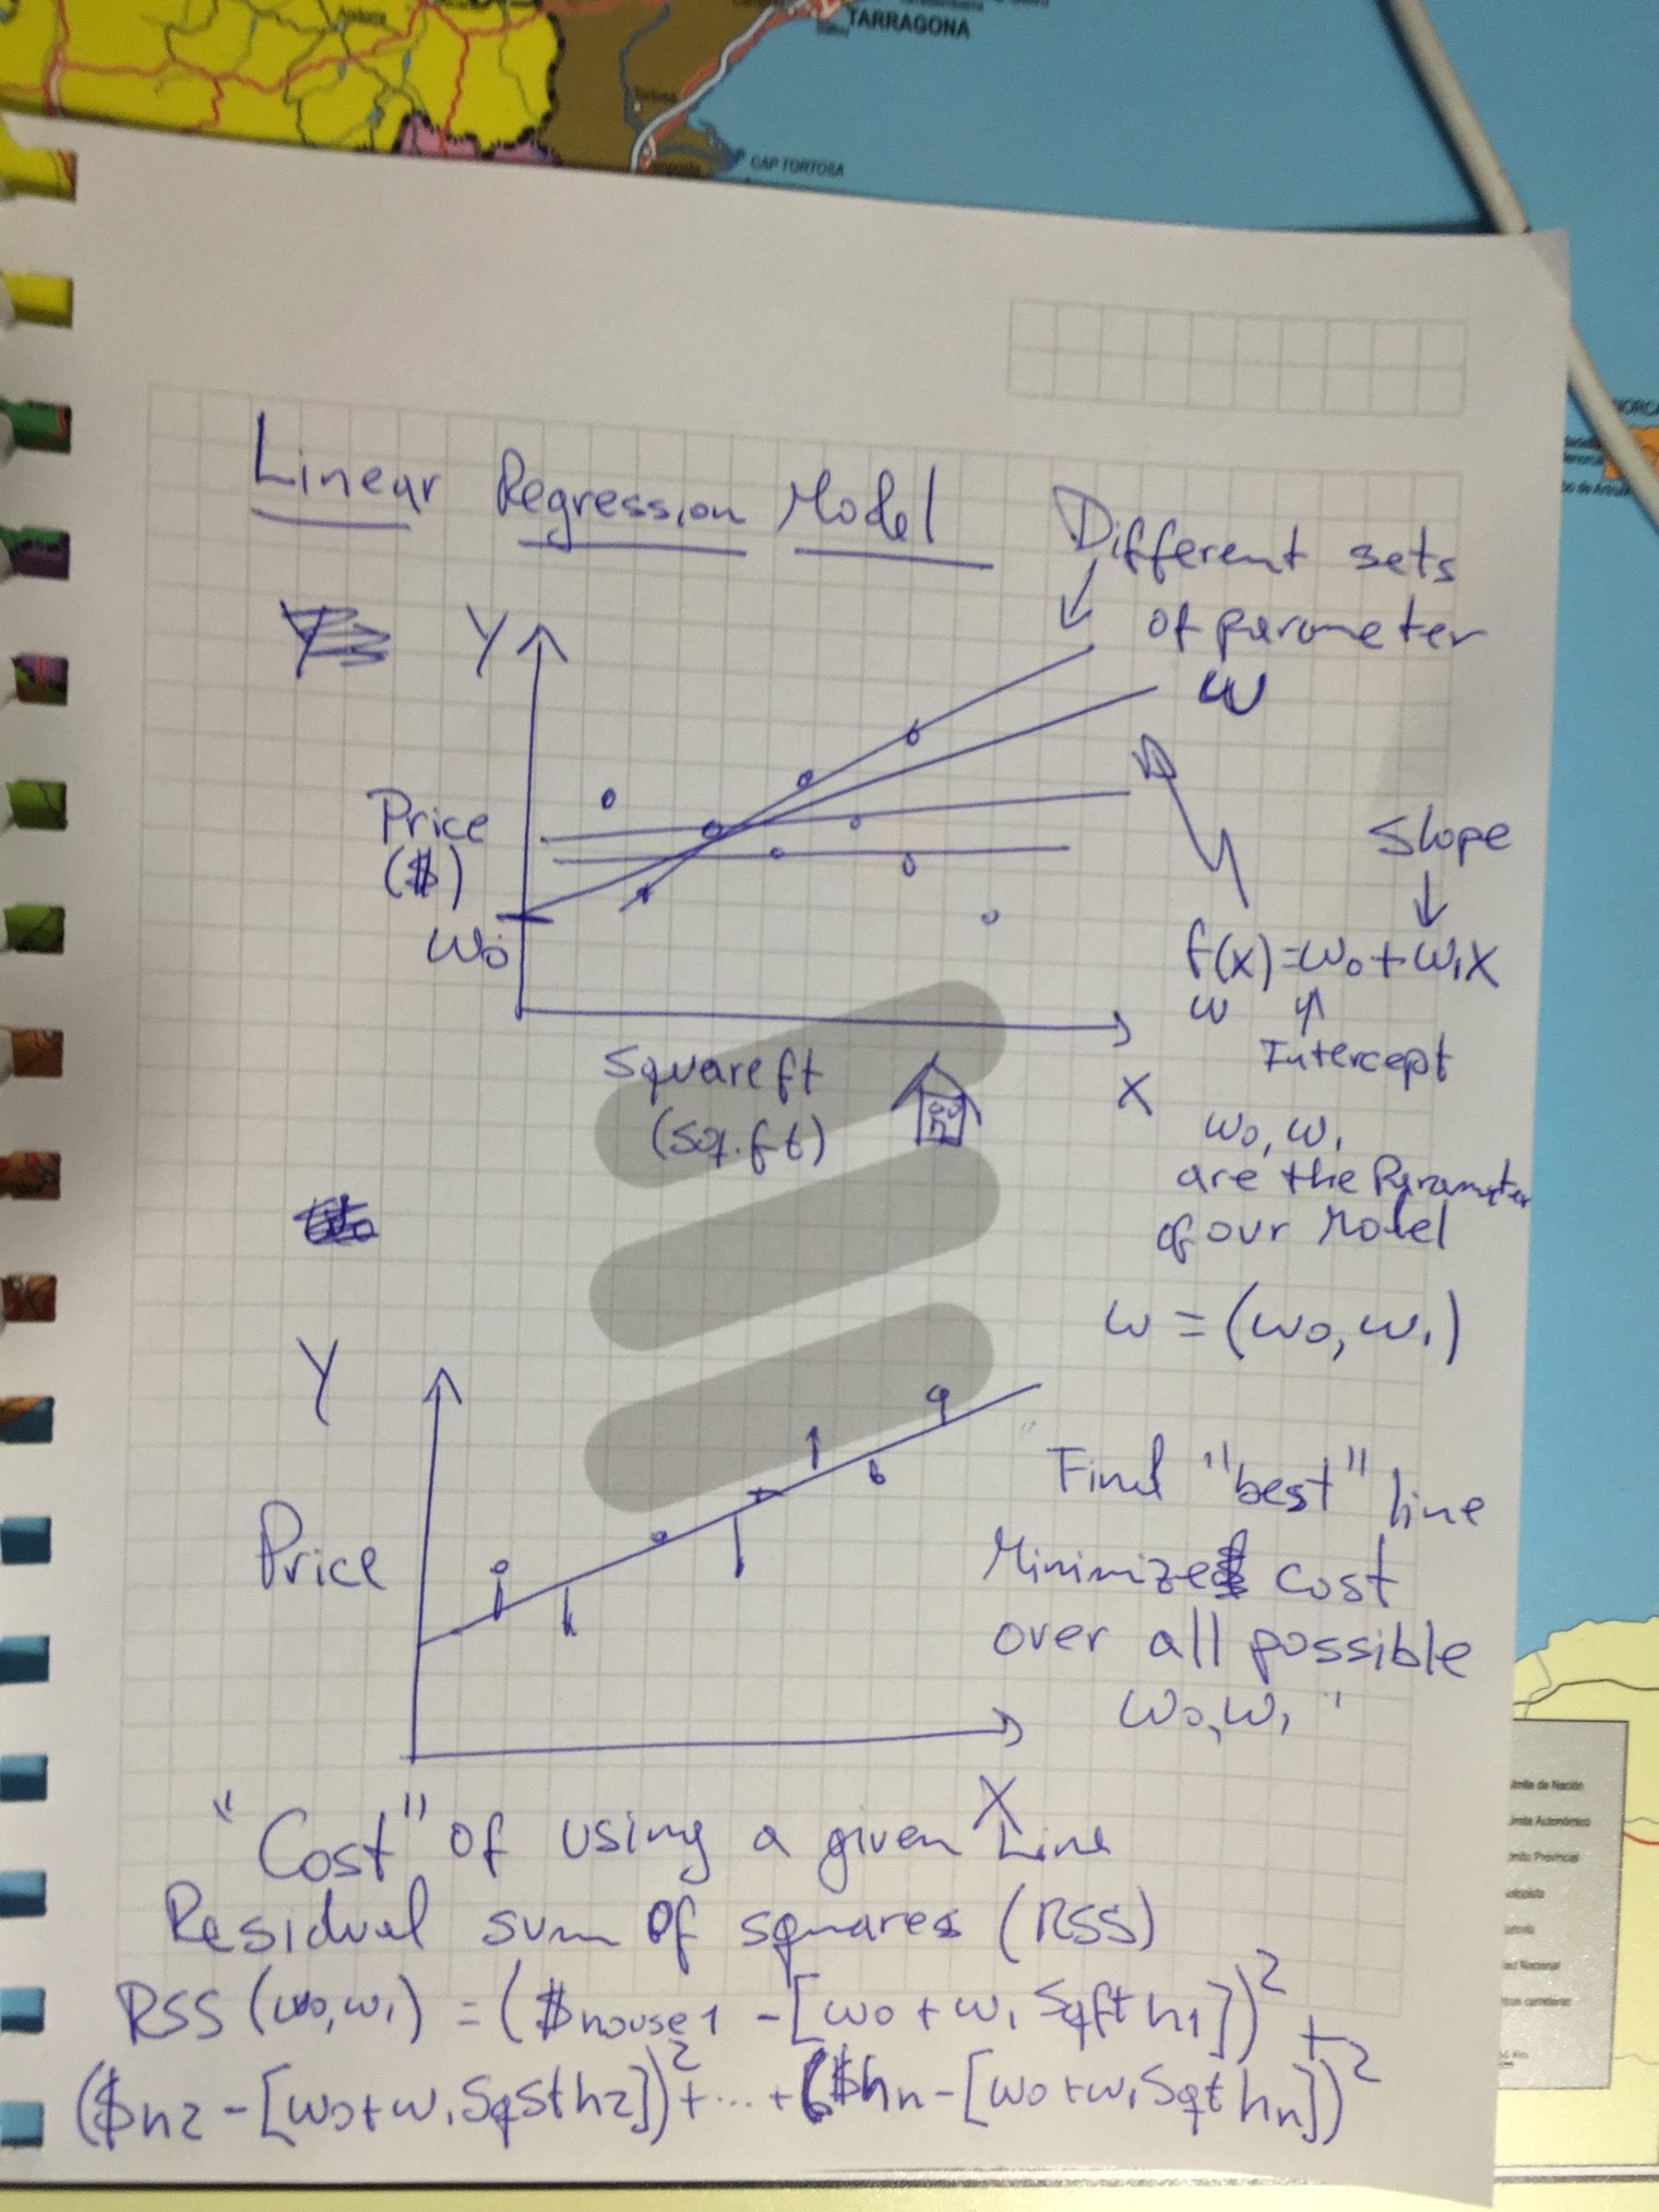 TARRAGONA
CAP TORTOSA
Linear Regression Model
Different sets
of parameter
w
Y
Price
($)
w0
Square ft
(sq.ft)
X
Slope
f(x)=w0+w1x
w
Intercept
w0, w1
are the Parameter
of our Model
w = (w0, w1)
Y
Price
X
Find "best" line
Minimize cost
over all possible
w0, w1
"Cost" of using a given Line
Residual sum of squares (RSS)
RSS (w0,w1) = ($house1 - [w0 + w1 Sqft h1])² +
($h2 - [w0+w1 Sqft h2])² + ... + ($hn - [w0+w1 Sqt hn])²
Límite de Nación
Límite Autonómico
Límite Provincial